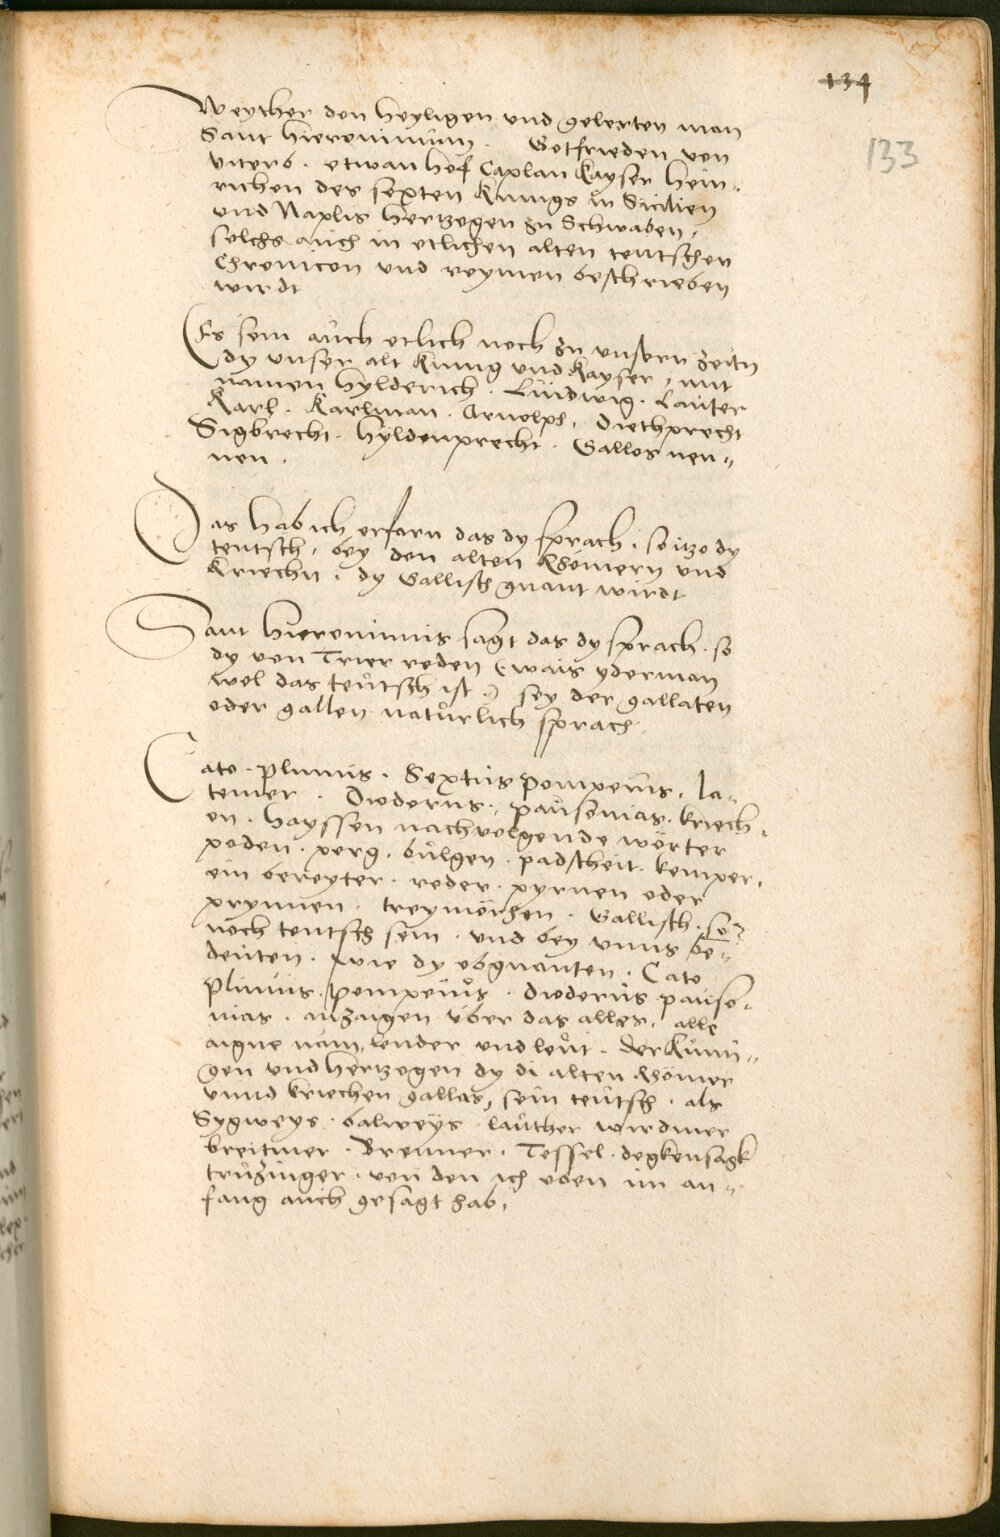 134
133
Weyther den heyligen und gelerten man
Sant Hieronimum. Gotfrieden von
viterb. etwan hof Caplan Kayser Hein-
richen des sexten Kunigs in Sicilien
und Naplis Hertzogen zu Schwaben,
solchs auch in etlichen alten teutschen
Chronicen und reymen beschrieben
wirdt
Es sein auch etlich noch zu unsern zeitn
dy unser alt Kunig und Kayser, mit
namen Hylderich. Ludwig. Lauter
Karl. Karlman. Arnolph. Diethprecht
Sigbrecht. Hyldenprecht. Gallos nen-
nen.
Das hab ich erfarn das dy sprach. so itzo dy
teutsch, bey den alten Rhömern und
Kriechn, dy Gallisch gnant wirdt
Sant Hieronimus sagt das dy sprach. so
dy von Trier reden (wais yderman
wol das teutsch ist) sey der gallaten
oder gallen naturlich sprach
Cato. plinius. Sextus pompeius, la-
teiner. Diodorus. pausonias. kriech-
en. hayssen nachvolgende wörter
poden. perg. bulgen. padstheit. kemper.
ein bereyter. reder. pyrnen oder
prynnen. treymörhen. Gallisch. so
noch teutsch sein. und bey unns be-
deuten. wie dy obgnanten. Cato
plinius. pompeius. Diodorus pauso-
nias. anzaigen uber das alles, alle
aigne nam, lender und leut. der Kuni-
gen und Hertzogen dy di alten Rhömer
unnd kriechen gallas, sein teutsch. als
Sygweys. balweys. lauther wirdmer
breitmer. Brenner. Tessel. degkensagk
truzinger. von den ich oben im an-
fang auch gesagt hab,